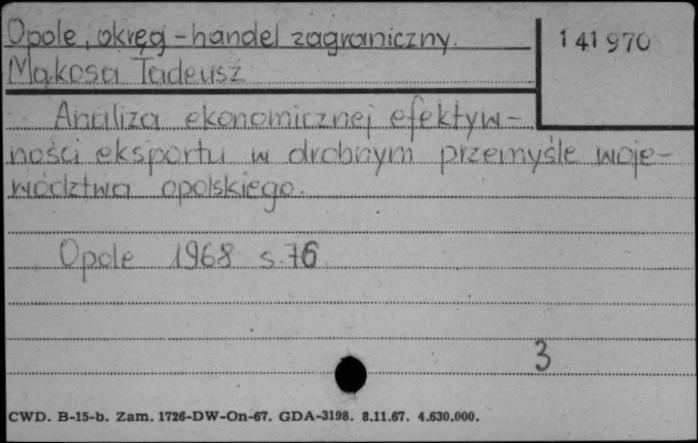 Opole, okręg - handel zagraniczny.
141970
Mąkosa Tadeusz
Analiza ekonomicznej efektyw-
ności eksportu w drobnym przemyśle woje-
wództwa opolskiego.
Opole 1968 s. 76
3
CWD. B-15-b. Zam. 1726-DW-On-67. GDA-3198. 8.11.67. 4.630.000.